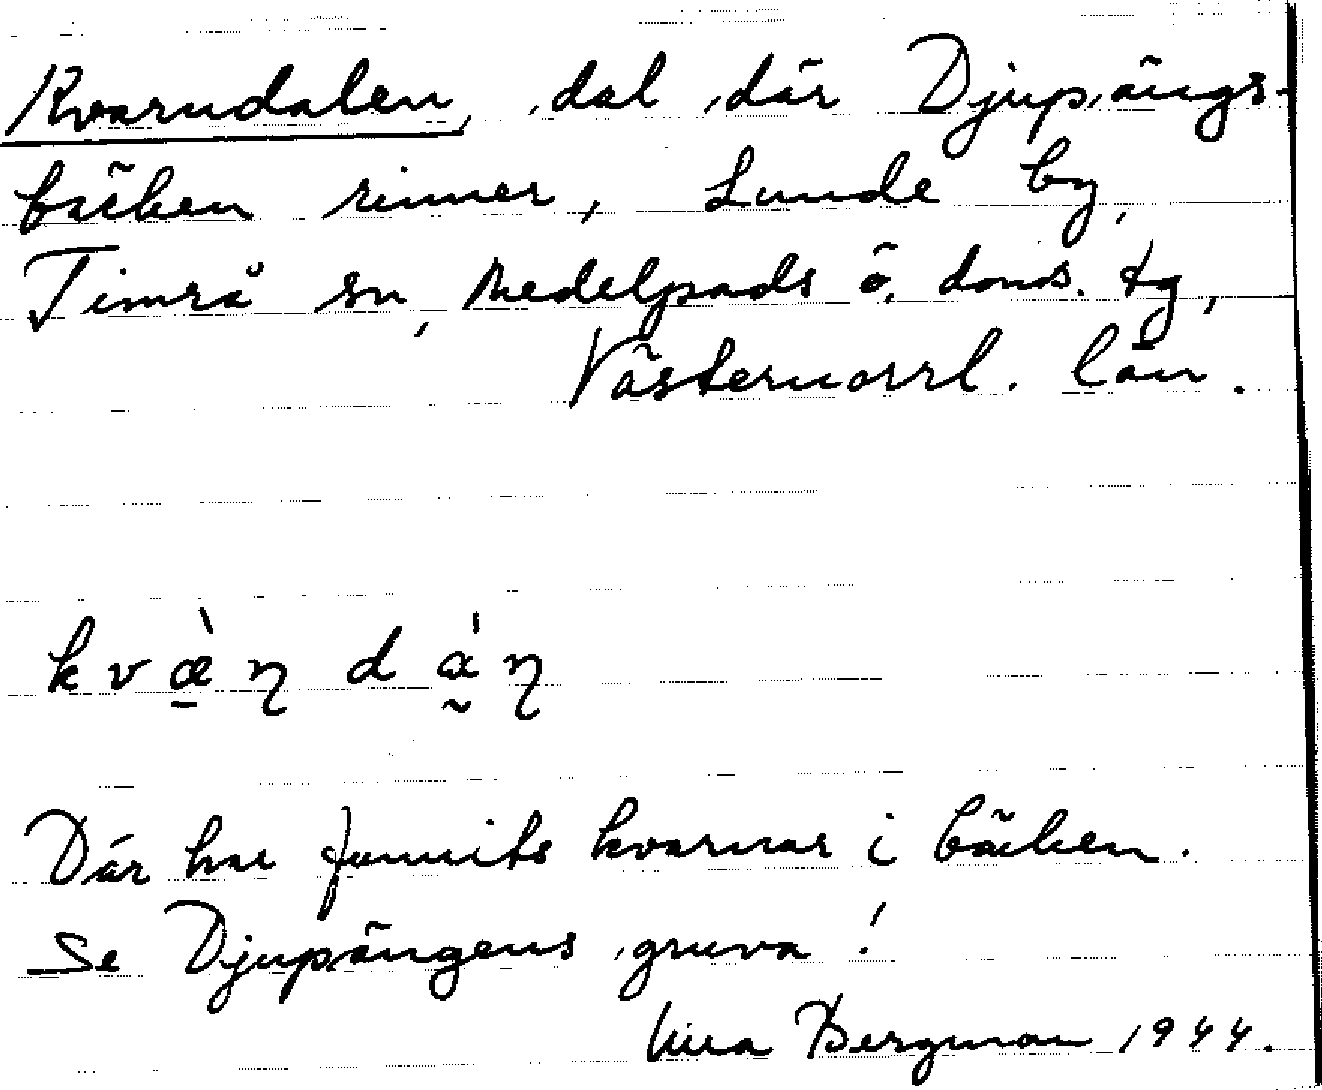 Kvarndalen, dal där Djupängs-
bäcken rinner, Lunde by,
Timrå sn, Medelpads ö. doms. tg,
Västernorrl. län.
kvæ̱̀ɳ dά̰ɳ
Där har funnits kvarnar i bäcken.
Se Djupängens gruva!
Bergman 1944.